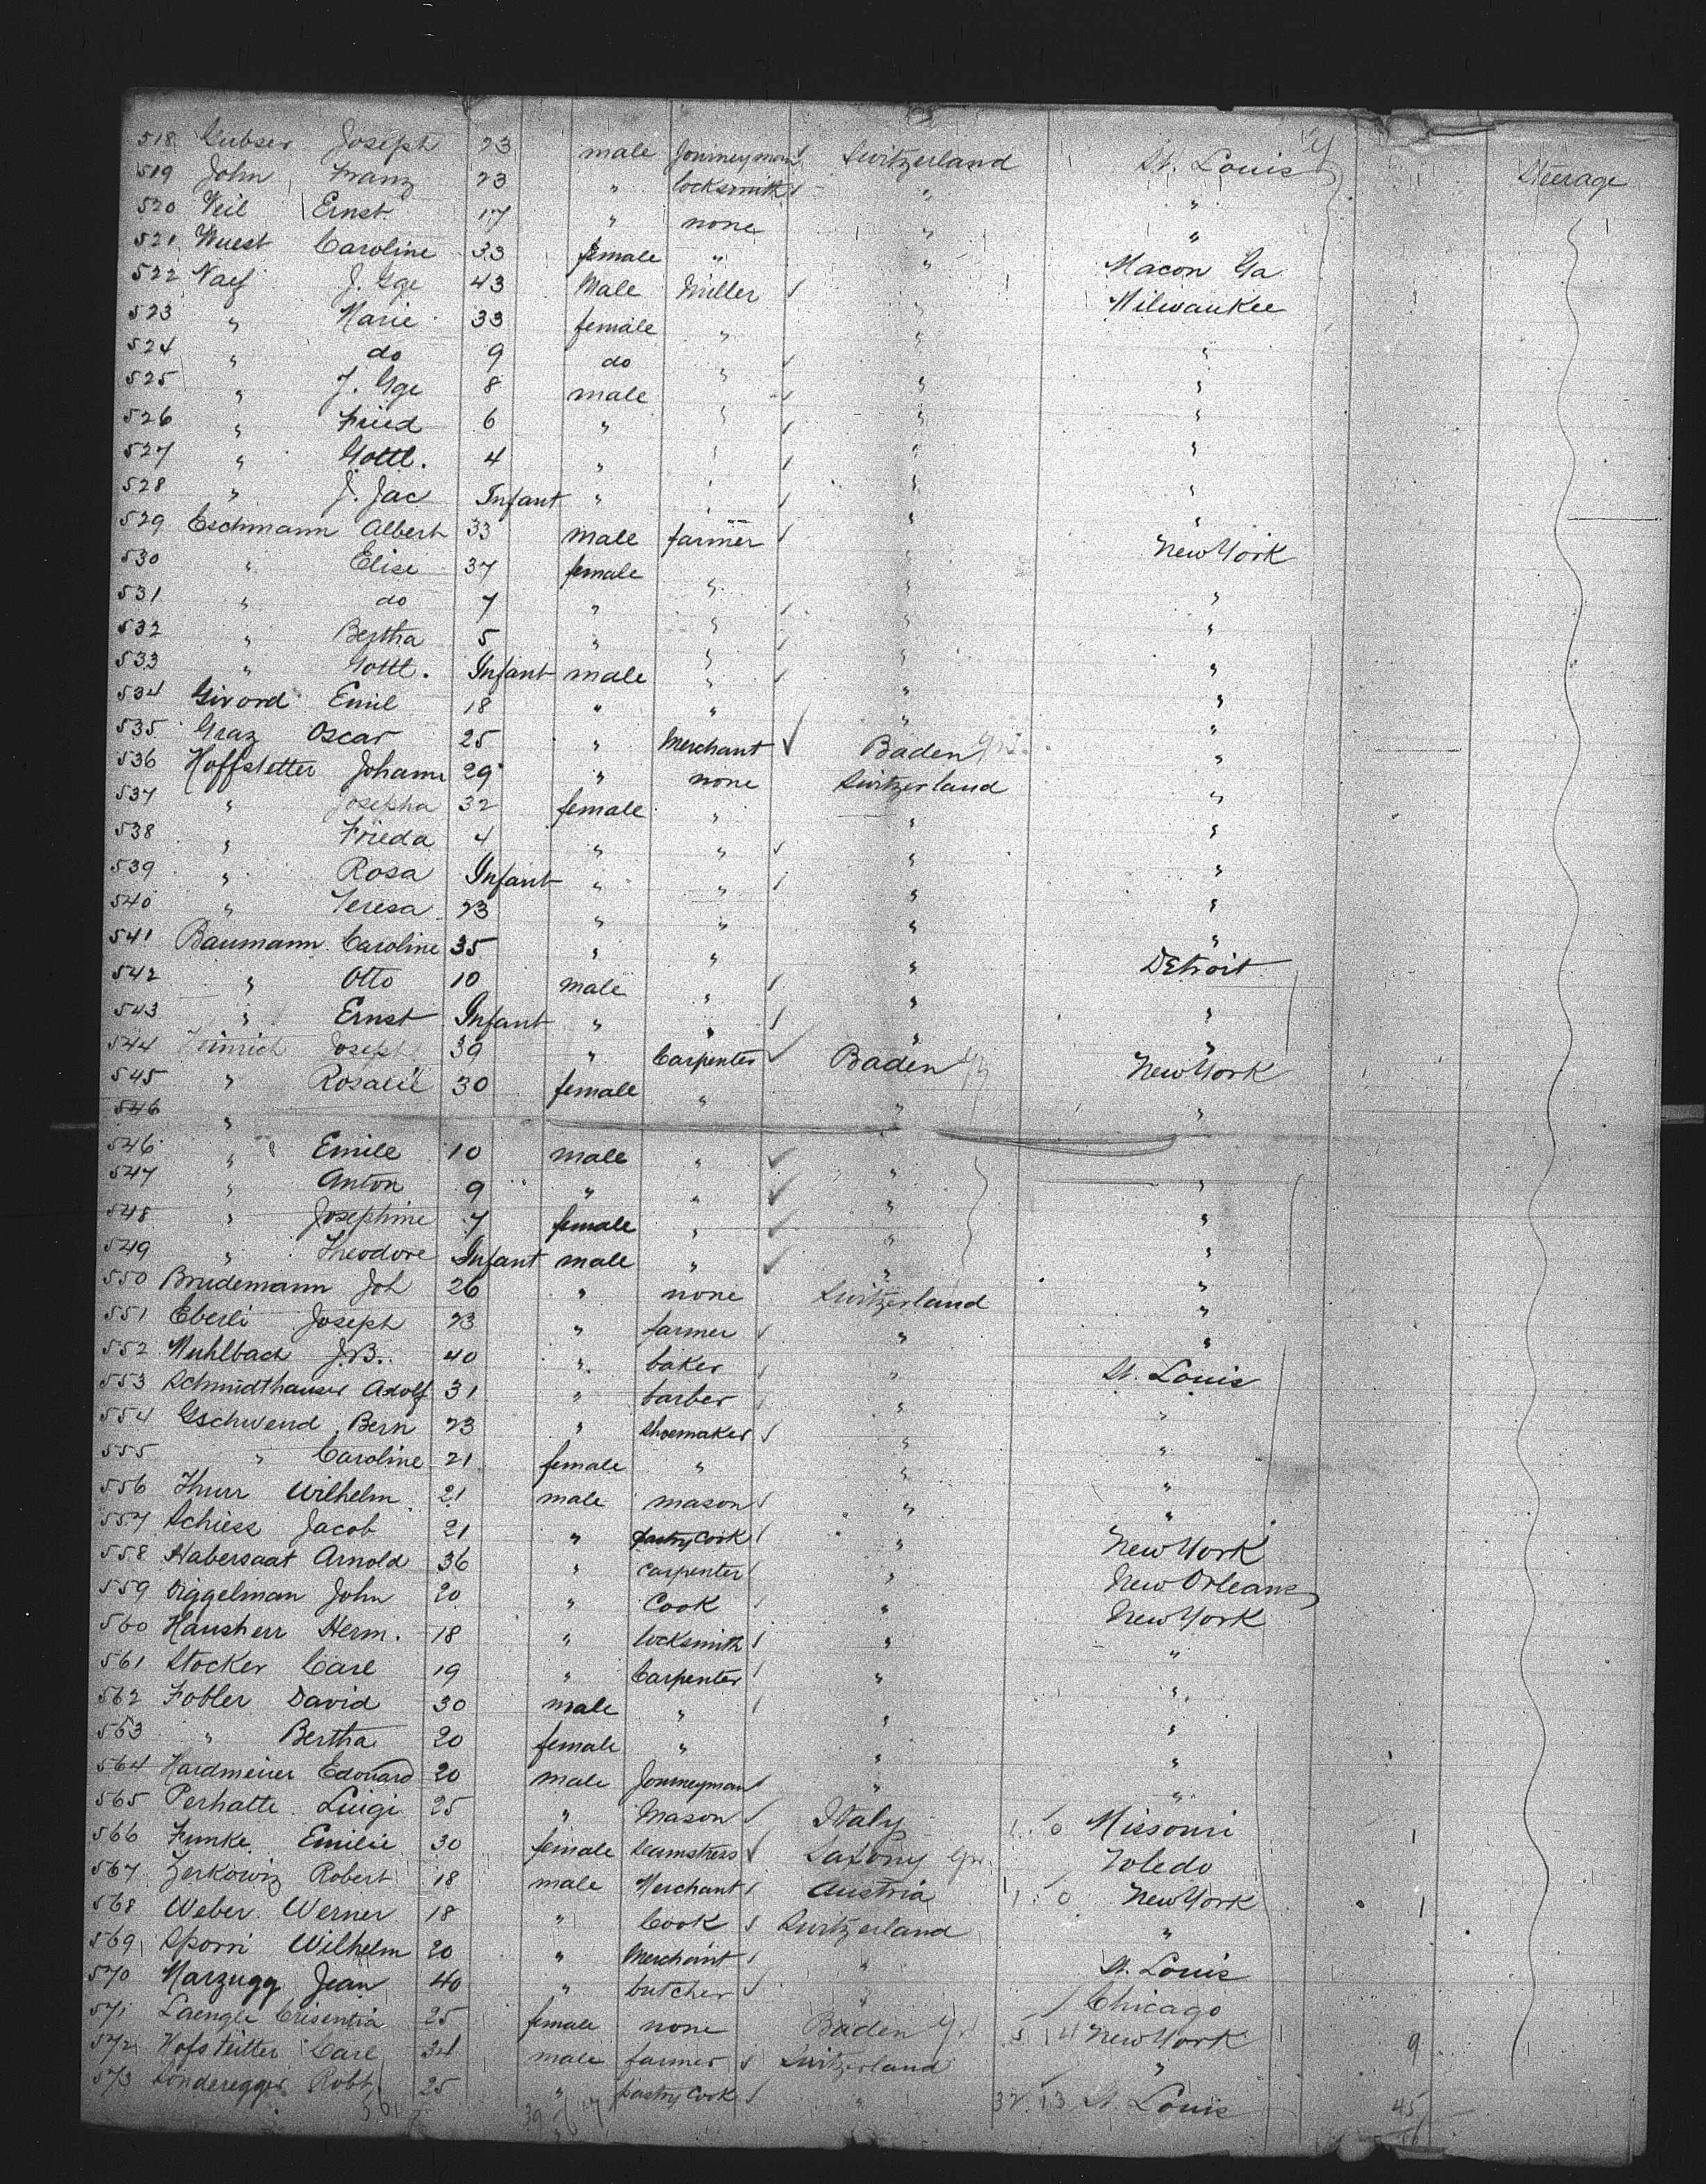 518 Gubser Joseph 23 male Journeyman Switzerland St. Louis Steerage
519 John Franz 23 " locksmith " "
520 Veil Ernst 17 " none " "
521 Wuest Caroline 33 female " " Macon Ga
522 Naef J. Gge 43 Male Miller " Milwaukee
523 " Marie 33 female " " "
524 " do 9 do " " "
525 " J. Gge 8 male " " "
526 " Fried 6 " " " "
527 " Gottl. 4 " " " "
528 " J. Jac Infant " " " "
529 Eschmann Albert 33 male farmer " New York
530 " Elise 37 female " " "
531 " do 7 " " " "
532 " Bertha 5 " " " "
533 " Gottl. Infant male " " "
534 Givord Emil 18 " " " "
535 Graz Oscar 25 " Merchant Baden "
536 Hoffstetter Johann 29 " none Switzerland "
537 " Josepha 32 female " " "
538 " Frieda 4 " " " "
539 " Rosa Infant " " " "
540 " Teresa 23 " " " "
541 Baumann Caroline 35 " " " Detroit
542 " Otto 10 male " " "
543 " Ernst Infant " " " "
544 Heinrich Joseph 39 " Carpenter Baden New York
545 " Rosalie 30 female " " "
546 "
546 " Emile 10 male " " "
547 " Anton 9 " " " "
548 " Josephine 7 female " " "
549 " Theodore Infant male " " "
550 Brudemann Joh 26 " none Switzerland "
551 Eberli Joseph 23 " farmer " "
552 Muhlbach J.B. 40 " baker " St. Louis
553 Schmidthauser Adolf 31 " barber " "
554 Gschwend Bern 23 " Shoemaker " "
555 " Caroline 21 female " " "
556 Thurr Wilhelm 21 male mason " "
557 Schiess Jacob 21 " pastry Cook " New York
558 Habersaat Arnold 36 " Carpenter " New Orleans
559 Diggelman John 20 " Cook " New York
560 Hausherr Herm. 18 " locksmith " "
561 Stocker Carl 19 " Carpenter " "
562 Fobler David 30 male " " "
563 " Bertha 20 female " " "
564 Hardmeier Edouard 20 male Journeyman " "
565 Perhatte Luigi 25 " Mason Italy Missouri 1
566 Funke Emilie 30 female Seamstress Saxony Toledo
567 Zerkowiz Robert 18 male Merchant Austria New York 1
568 Weber Werner 18 " Cook Switzerland "
569 Sporri Wilhelm 20 " Merchant " St. Louis
570 Marzugg Jean 40 " butcher " Chicago
571 Laengle Crisentia 25 female none Baden 5 14 New York 9
572 Hofstetter Carl 34 male farmer Switzerland "
573 Sonderegger Robt. 25 " pastry Cook " 32 13 St. Louis 45